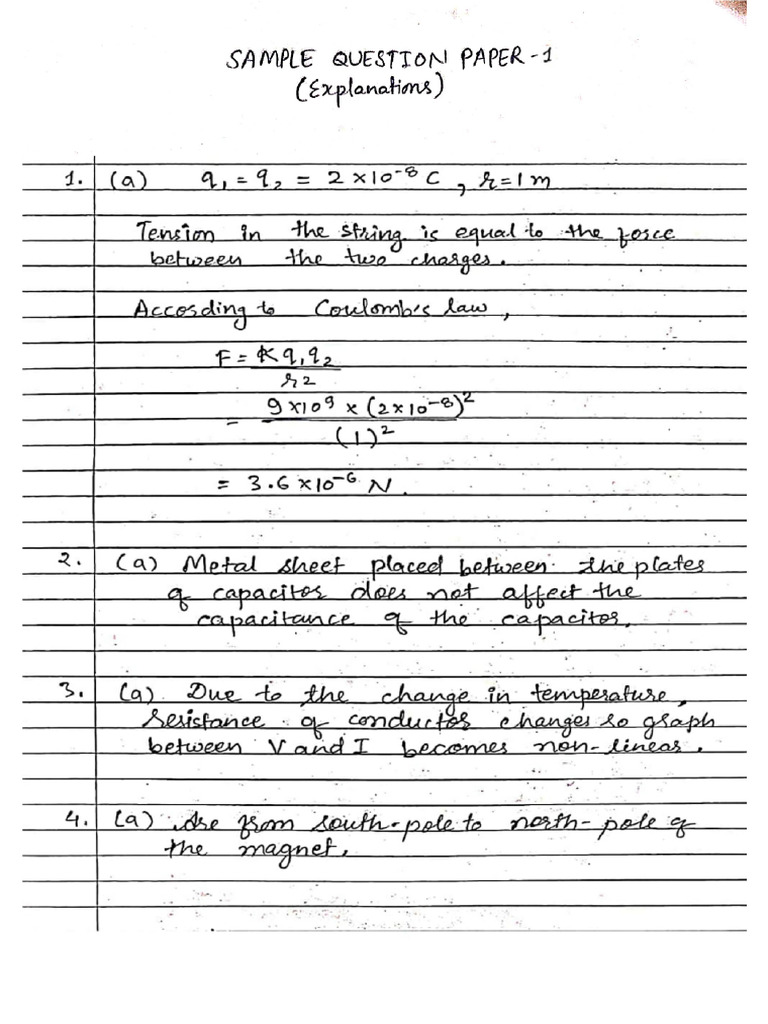 SAMPLE QUESTION PAPER-1
(Explanations)
1. (a) q₁ = q₂ = 2 × 10⁻⁸ C, r = 1 m
Tension in the string is equal to the force
between the two charges.
According to Coulomb's law,
F = K q₁ q₂
r2
= 9 × 10⁹ × (2 × 10⁻⁸)²
(1)²
= 3.6 × 10⁻⁶ N.
2. (a) Metal sheet placed between the plates
of capacitor does not affect the
capacitance of the capacitor.
3. (a) Due to the change in temperature,
resistance of conductor changes so graph
between V and I becomes non-linear.
4. (a) Are from south-pole to north-pole of
the magnet.